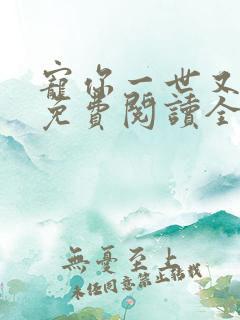 寵你一世又
免費閱讀全
無憂至上
未經同意禁止轉載